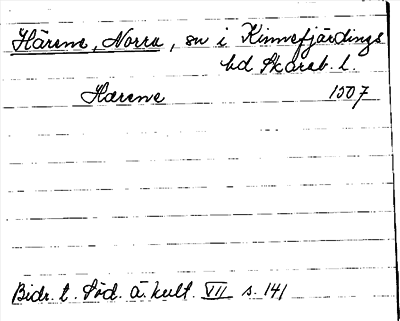 Härene, Norra, sn i Kinnefjärdings
hd Skarab. l.
Harene 1507
Bidr. t. Söd. Ä. kult. VII s. 141